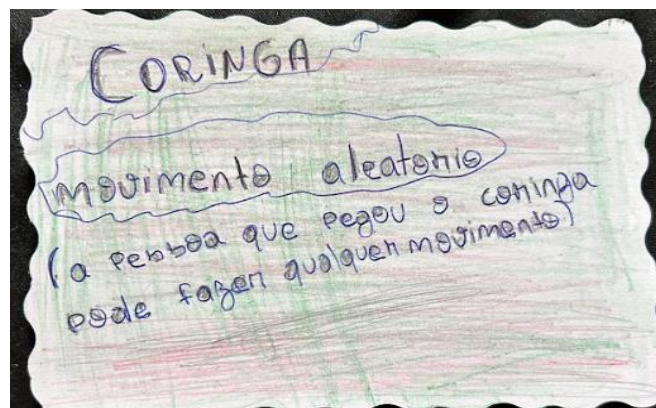 CORINGA
movimento aleatorio
(a pessoa que pegou o coringa
pode fazer qualquer movimento)